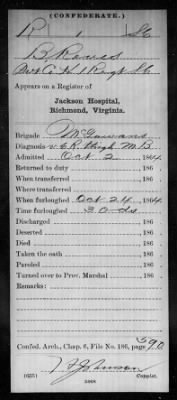 (CONFEDERATE.)
R 1 SC
B
Pvt Co H 1 Regt SC
Appears on a Register of
Jackson Hospital,
Richmond, Virginia.
Brigade McGowans
Diagnosis v.s. R. thigh M.B.
Admitted Oct 2, 1864.
Returned to duty , 186 .
When transferred , 186 .
Where transferred
When furloughed Oct 24, 1864.
Time furloughed 30 ds
Discharged , 186 .
Deserted , 186 .
Died , 186 .
Taken the oath , 186 .
Paroled , 186 .
Turned over to Prov. Marshal , 186 .
Remarks:
Confed. Arch., Chap. 6, File No. 186, page 390
Johnson
(635) Copyist.